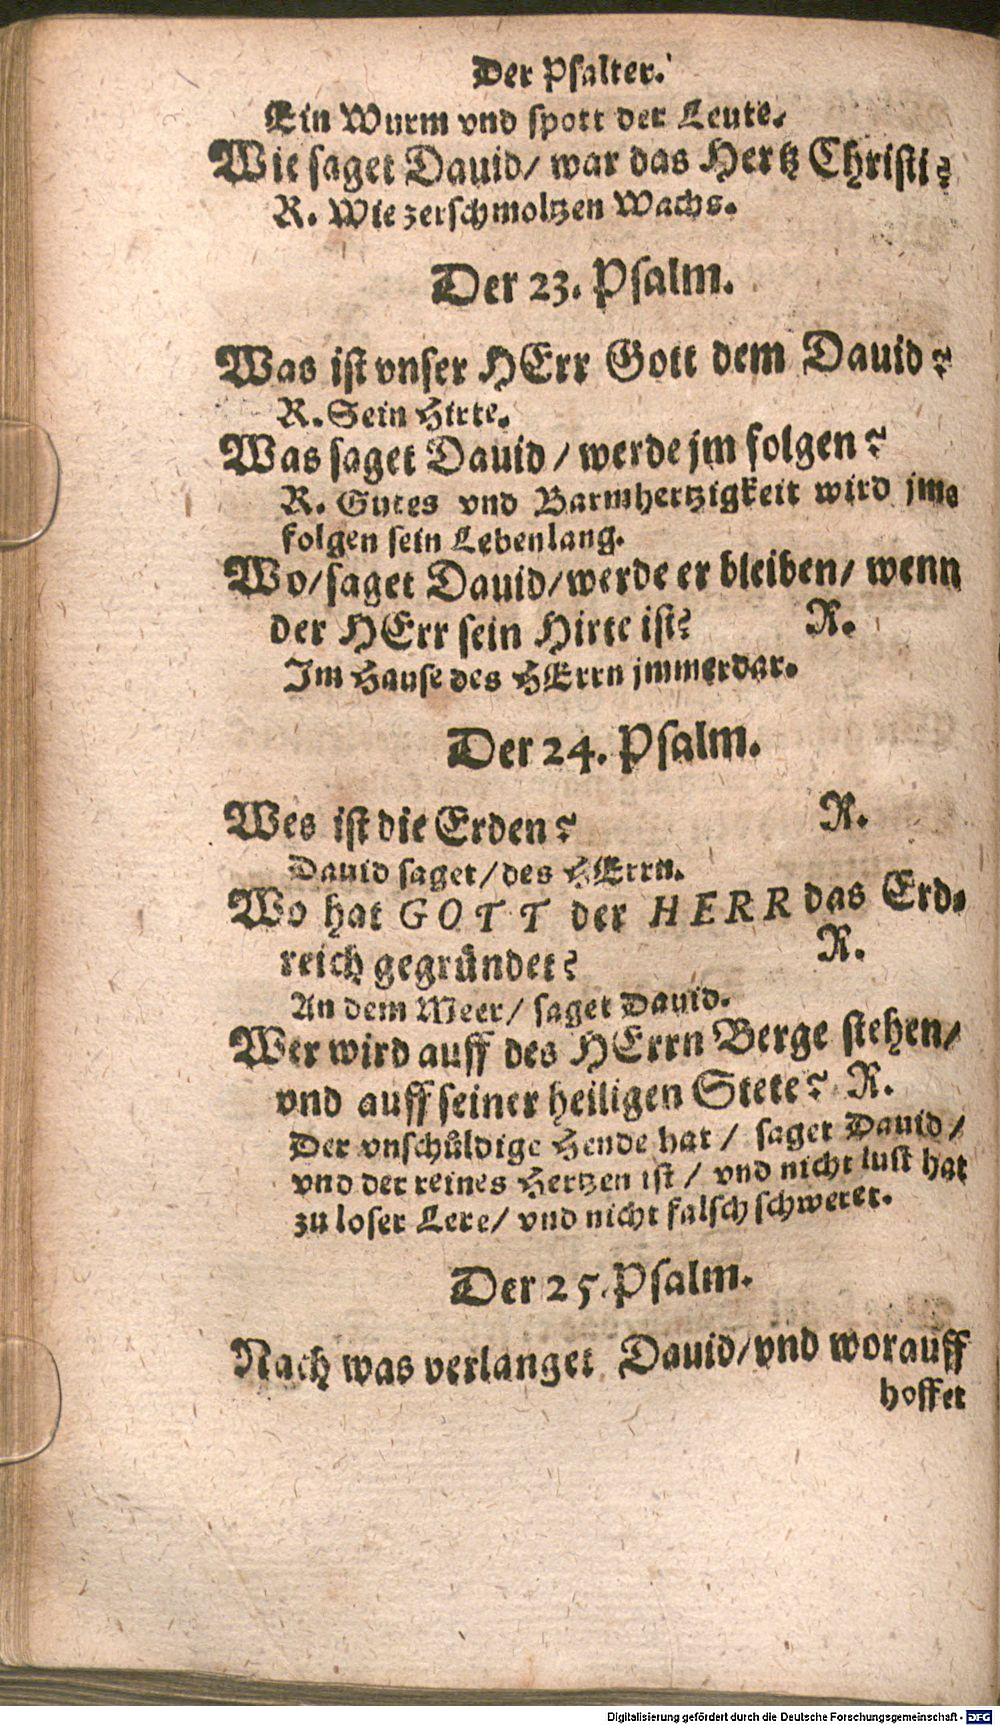 Der Psalter.
Ein Wurm vnd spott der Leute.
Wie saget Dauid/ war das Hertz Christi?
R. Wie zerschmoltzen Wachs.
Der 23. Psalm.
Was ist vnser HErr Gott dem Dauid?
R. Sein Hirte.
Was saget Dauid / werde jm folgen?
R. Gutes vnd Barmhertzigkeit wird jme
folgen sein Lebenlang.
Wo/saget Dauid/werde er bleiben/ wenn
der HErr sein Hirte ist? R.
Im Hause des HErrn jmmerdar.
Der 24. Psalm.
Wes ist die Erden? R.
Dauid saget/des HErrn.
Wo hat GOTT der HERR das Erd-
reich gegründet? R.
An dem Meer/ saget Dauid.
Wer wird auff des HErrn Berge stehen/
vnd auff seiner heiligen Stete? R.
Der vnschüldige Hende hat / saget Dauid /
vnd der reines Hertzen ist / vnd nicht lust hat
zu loser Lere/ vnd nicht falsch schweret.
Der 25. Psalm.
Nach was verlanget Dauid/vnd worauff
hoffet
Digitalisierung gefördert durch die Deutsche Forschungsgemeinschaft - DFG